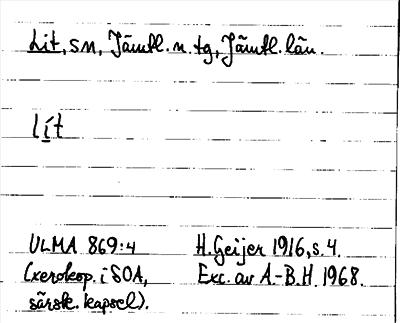 Lit, sn, Jämtl. n. tg, Jämtl. län.
lít
ULMA 869:4 H. Geijer 1916, s. 4.
(xerokop. i SOA, Exc. av A.-B.H. 1968.
särsk. kapsel).